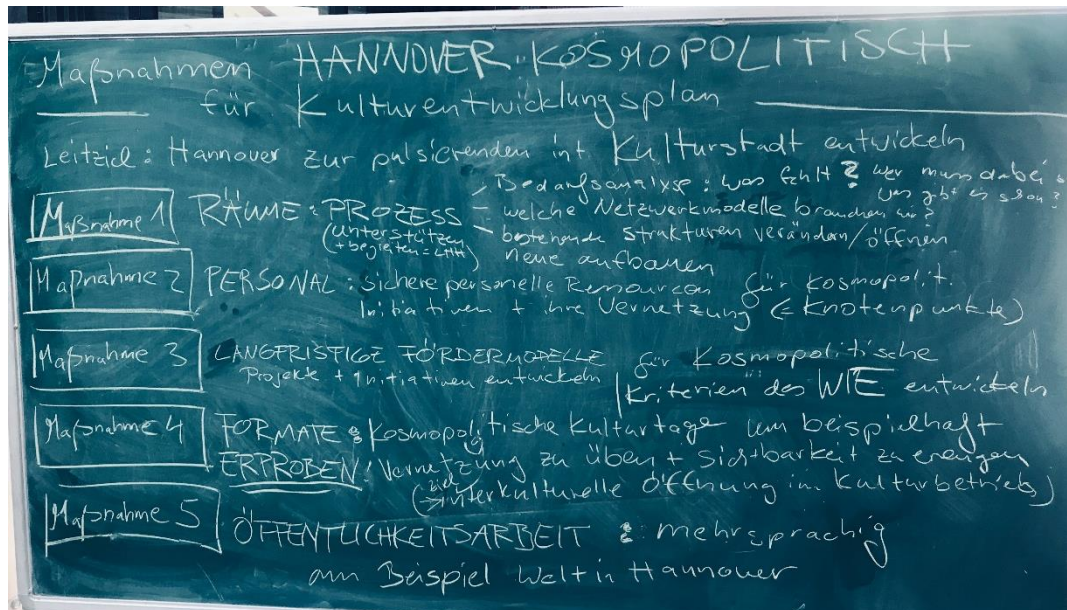 Maßnahmen HANNOVER-KOSMOPOLITISCH
für Kulturentwicklungsplan
Leitziel: Hannover zur pulsierenden int Kulturstadt entwickeln
Maßnahme 1 RÄUME: PROZESS
(unterstützen
+ begleiten =
- Bedarfsanalyse: was fehlt? wer muss dabei
was gibt es schon?
- welche Netzwerkmodelle brauchen wir?
- bestehende Strukturen verändern/öffnen
neue aufbauen
Maßnahme 2 PERSONAL: sichere personelle Ressourcen für kosmopolit.
Initiativen + ihre Vernetzung (= Knotenpunkte)
Maßnahme 3 LANGFRISTIGE FÖRDERMODELLE für Kosmopolitische
Projekte + Initiativen entwickeln
Kriterien des WIE entwickeln
Maßnahme 4 FORMATE: Kosmopolitische Kulturtage um beispielhaft
ERPROBEN! Vernetzung zu üben + Sichtbarkeit zu erzeugen
(→ Ziel interkulturelle Öffnung im Kulturbetrieb)
Maßnahme 5 ÖFFENTLICHKEITSARBEIT: mehrsprachig
am Beispiel Welt in Hannover